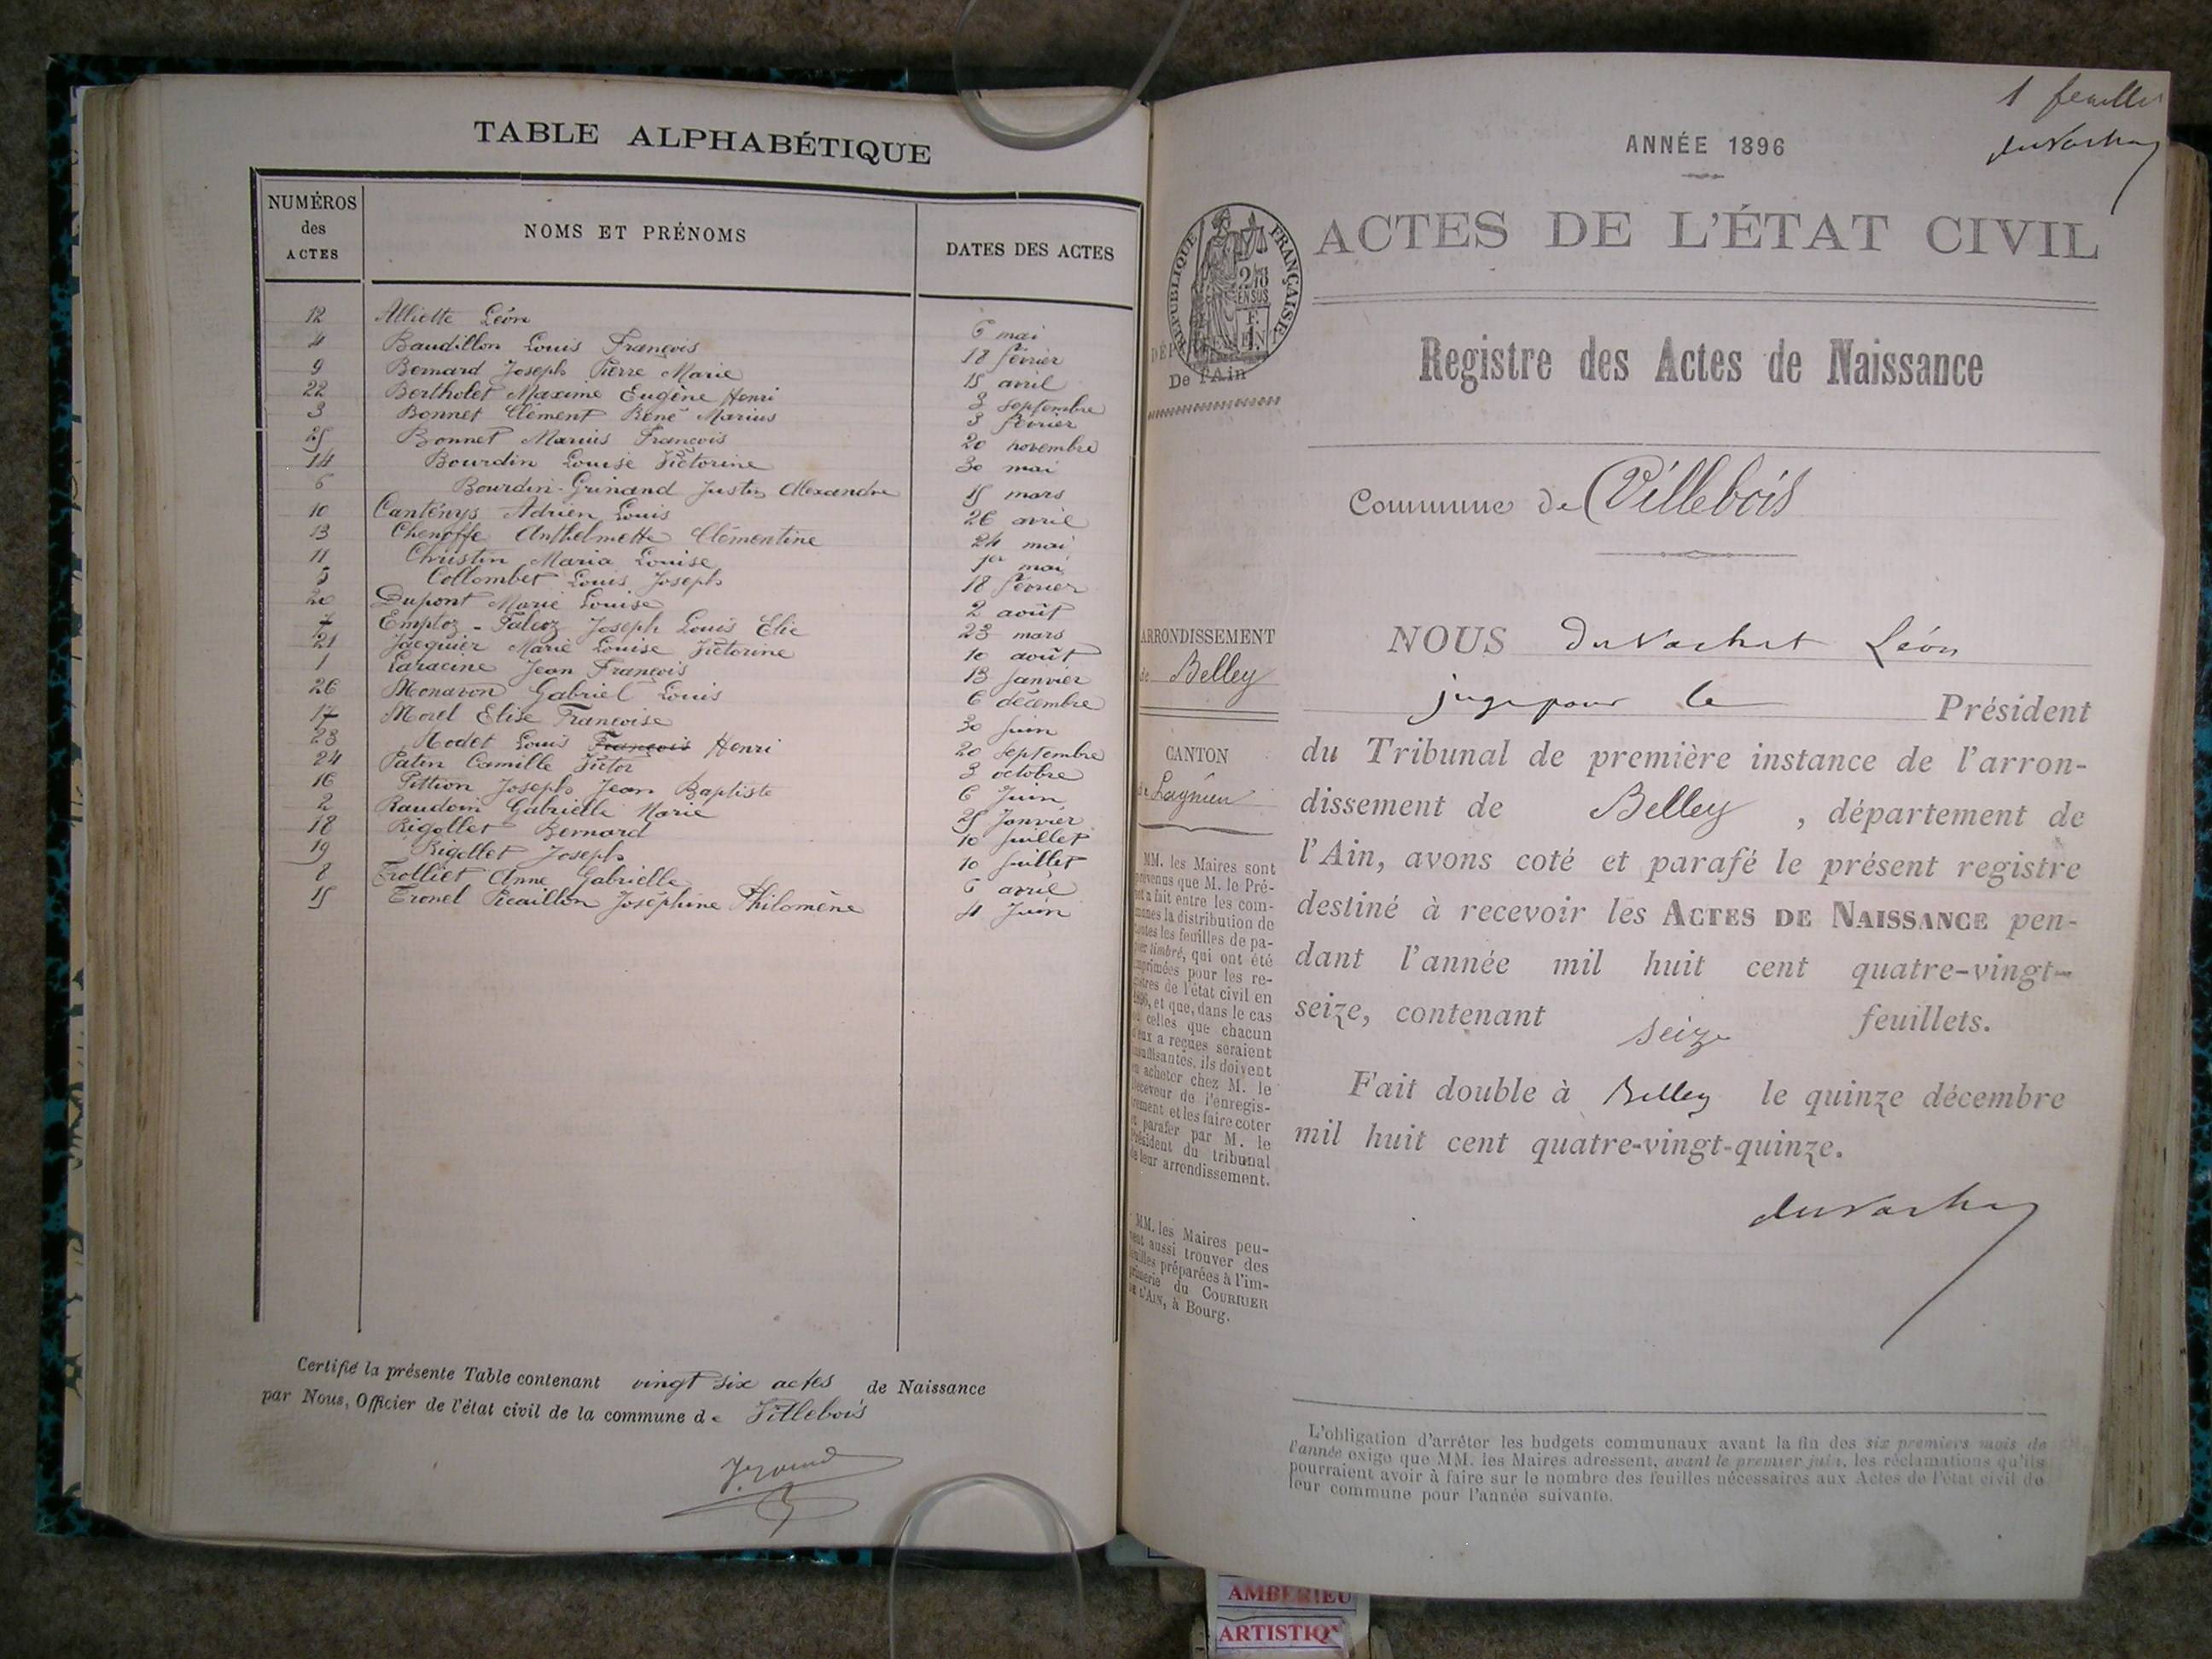 TABLE ALPHABÉTIQUE
NUMÉROS des ACTES | NOMS ET PRÉNOMS | DATES DES ACTES
12 Alliette Léon 6 mai
4 Baudillon Louis François 18 février
9 Bernard Joseph Pierre Marie 15 avril
22 Bertholet Maxime Eugène Henri 3 septembre
3 Bonnet Clément René Marius 3 février
25 Bonnet Marius François 20 novembre
14 Bourdin Louise Victorine 30 mai
6 Bourdin-Grinand Justin Alexandre 15 mars
10 Cantenys Adrien Louis 26 avril
13 Chenoffe Anthelmette Clémentine 24 mai
11 Christin Maria Louise 1er mai
5 Collombet Louis Joseph 18 février
20 Dupont Marie Louise 2 août
7 Emptoz-Falcoz Joseph Louis Elie 23 mars
21 Jacquier Marie Louise Victorine 10 août
1 Laracine Jean François 13 janvier
26 Monavon Gabriel Louis 6 décembre
17 Morel Elise Françoise 30 juin
23 Nodet Louis François Henri 20 septembre
24 Patin Camille Victor 3 octobre
16 Pittion Joseph Jean Baptiste 6 Juin
2 Raudoin Gabrielle Marie 25 Janvier
18 Rigollet Bernard 10 juillet
19 Rigollet Joseph 10 juillet
8 Trolliet Anne Gabrielle 6 avril
15 Tronel Picaillon Joséphine Philomène 4 Juin
Certifié la présente Table contenant vingt six actes de Naissance
par Nous, Officier de l'état civil de la commune de Villebois
1 feuillet
duVachat
ANNÉE 1896
ACTES DE L'ÉTAT CIVIL
RÉPUBLIQUE FRANÇAISE
De l'Ain
Registre des Actes de Naissance
Commune de Villebois
ARRONDISSEMENT
de Belley
CANTON
de Lagnieu
MM. les Maires sont
prévenus que M. le Pré-
fet a fait entre les com-
munes la distribution de
toutes les feuilles de pa-
pier timbré, qui ont été
imprimées pour les re-
gistres de l'état civil en
1896, et que, dans le cas
où celles que chacun
d'eux a reçues seraient
insuffisantes, ils doivent
en acheter chez M. le
Receveur de l'enregis-
trement et les faire coter
et parafer par M. le
Président du tribunal
de leur arrondissement.
MM. les Maires peu-
vent aussi trouver des
feuilles préparées à l'im-
primerie du COURRIER
DE L'AIN, à Bourg.
NOUS duVachat Léon
juge pour le Président
du Tribunal de première instance de l'arron-
dissement de Belley, département de
l'Ain, avons coté et parafé le présent registre
destiné à recevoir les ACTES DE NAISSANCE pen-
dant l'année mil huit cent quatre-vingt-
seize, contenant seize feuillets.
Fait double à Belley le quinze décembre
mil huit cent quatre-vingt-quinze.
duVachat
L'obligation d'arrêter les budgets communaux avant la fin des six premiers mois de
l'année exige que MM. les Maires adressent, avant le premier juin, les réclamations qu'ils
pourraient avoir à faire sur le nombre des feuilles nécessaires aux Actes de l'état civil de
leur commune pour l'année suivante.
AMBERIEU
ARTISTIQ